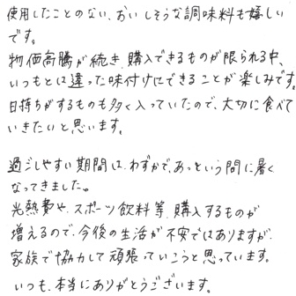 使用したことのない、おいしそうな調味料も嬉しい
です。
物価高騰が続き、購入できるものが限られる中、
いつもとは違った味付けにできることが楽しみです。
日持ちがするものも多く入っていたので、大切に食べて
いきたいと思います。
過ごしやすい期間は、わずかで、あっという間に暑く
なってきました。
光熱費や、スポーツ飲料等、購入するものが
増えるので、今後の生活が不安ではありますが、
家族で協力して頑張っていこうと思っています。
いつも、本当にありがとうございます。